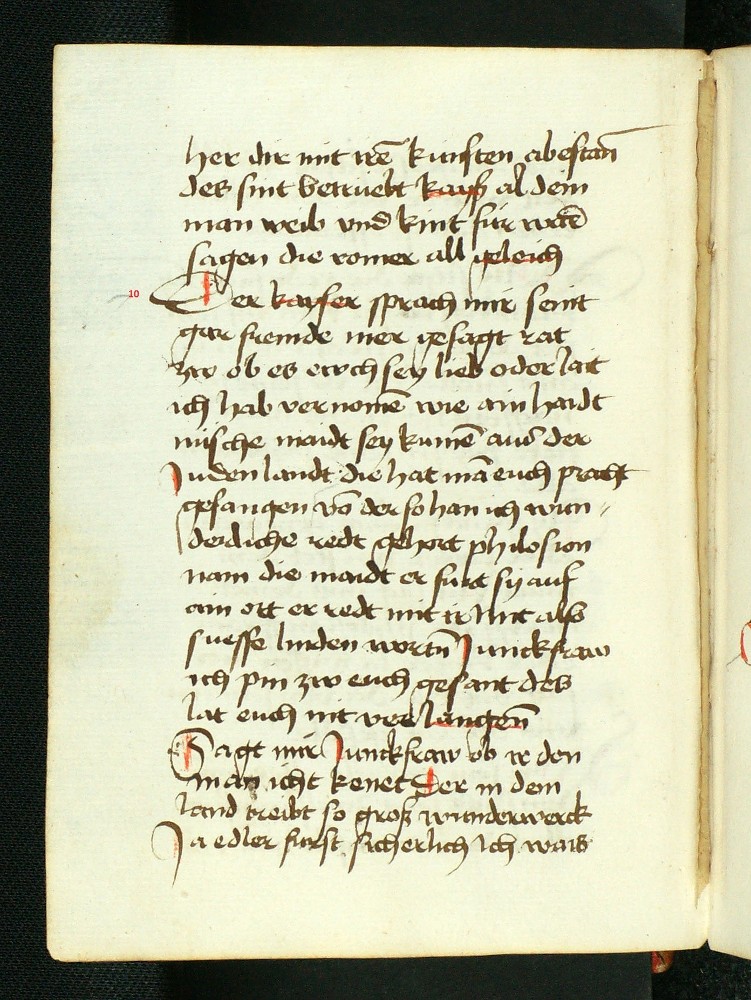 her dir mit irē kunsten abestan
des sint betruebt kayß al dein
man weib vnd kint fur ware
sagen die romer all geleich
10 Der kayser sprach mir seint
gar fremde mer gesagt rat
zw ob es ewch sey lieb oder lait
ich hab vernomē wie ain haidt
nische maidt sey kumē aus der
Juden landt die hat mā euch pracht
gefangen vō der so han ich wun〃
derliche redt gehort philosion
nam die maidt er furt sy auf
ain ort er redt mit ir mit als
suesse linden wortn̄ Junckfraw
ich pin zw euch gesant des
lat euch nit verlangen̄
Sagt mir Junckfraw ob ir den
man icht kenet Der in dem
land treibt so groß wunderwerck
Ja edler furst sicherlich Ich wais